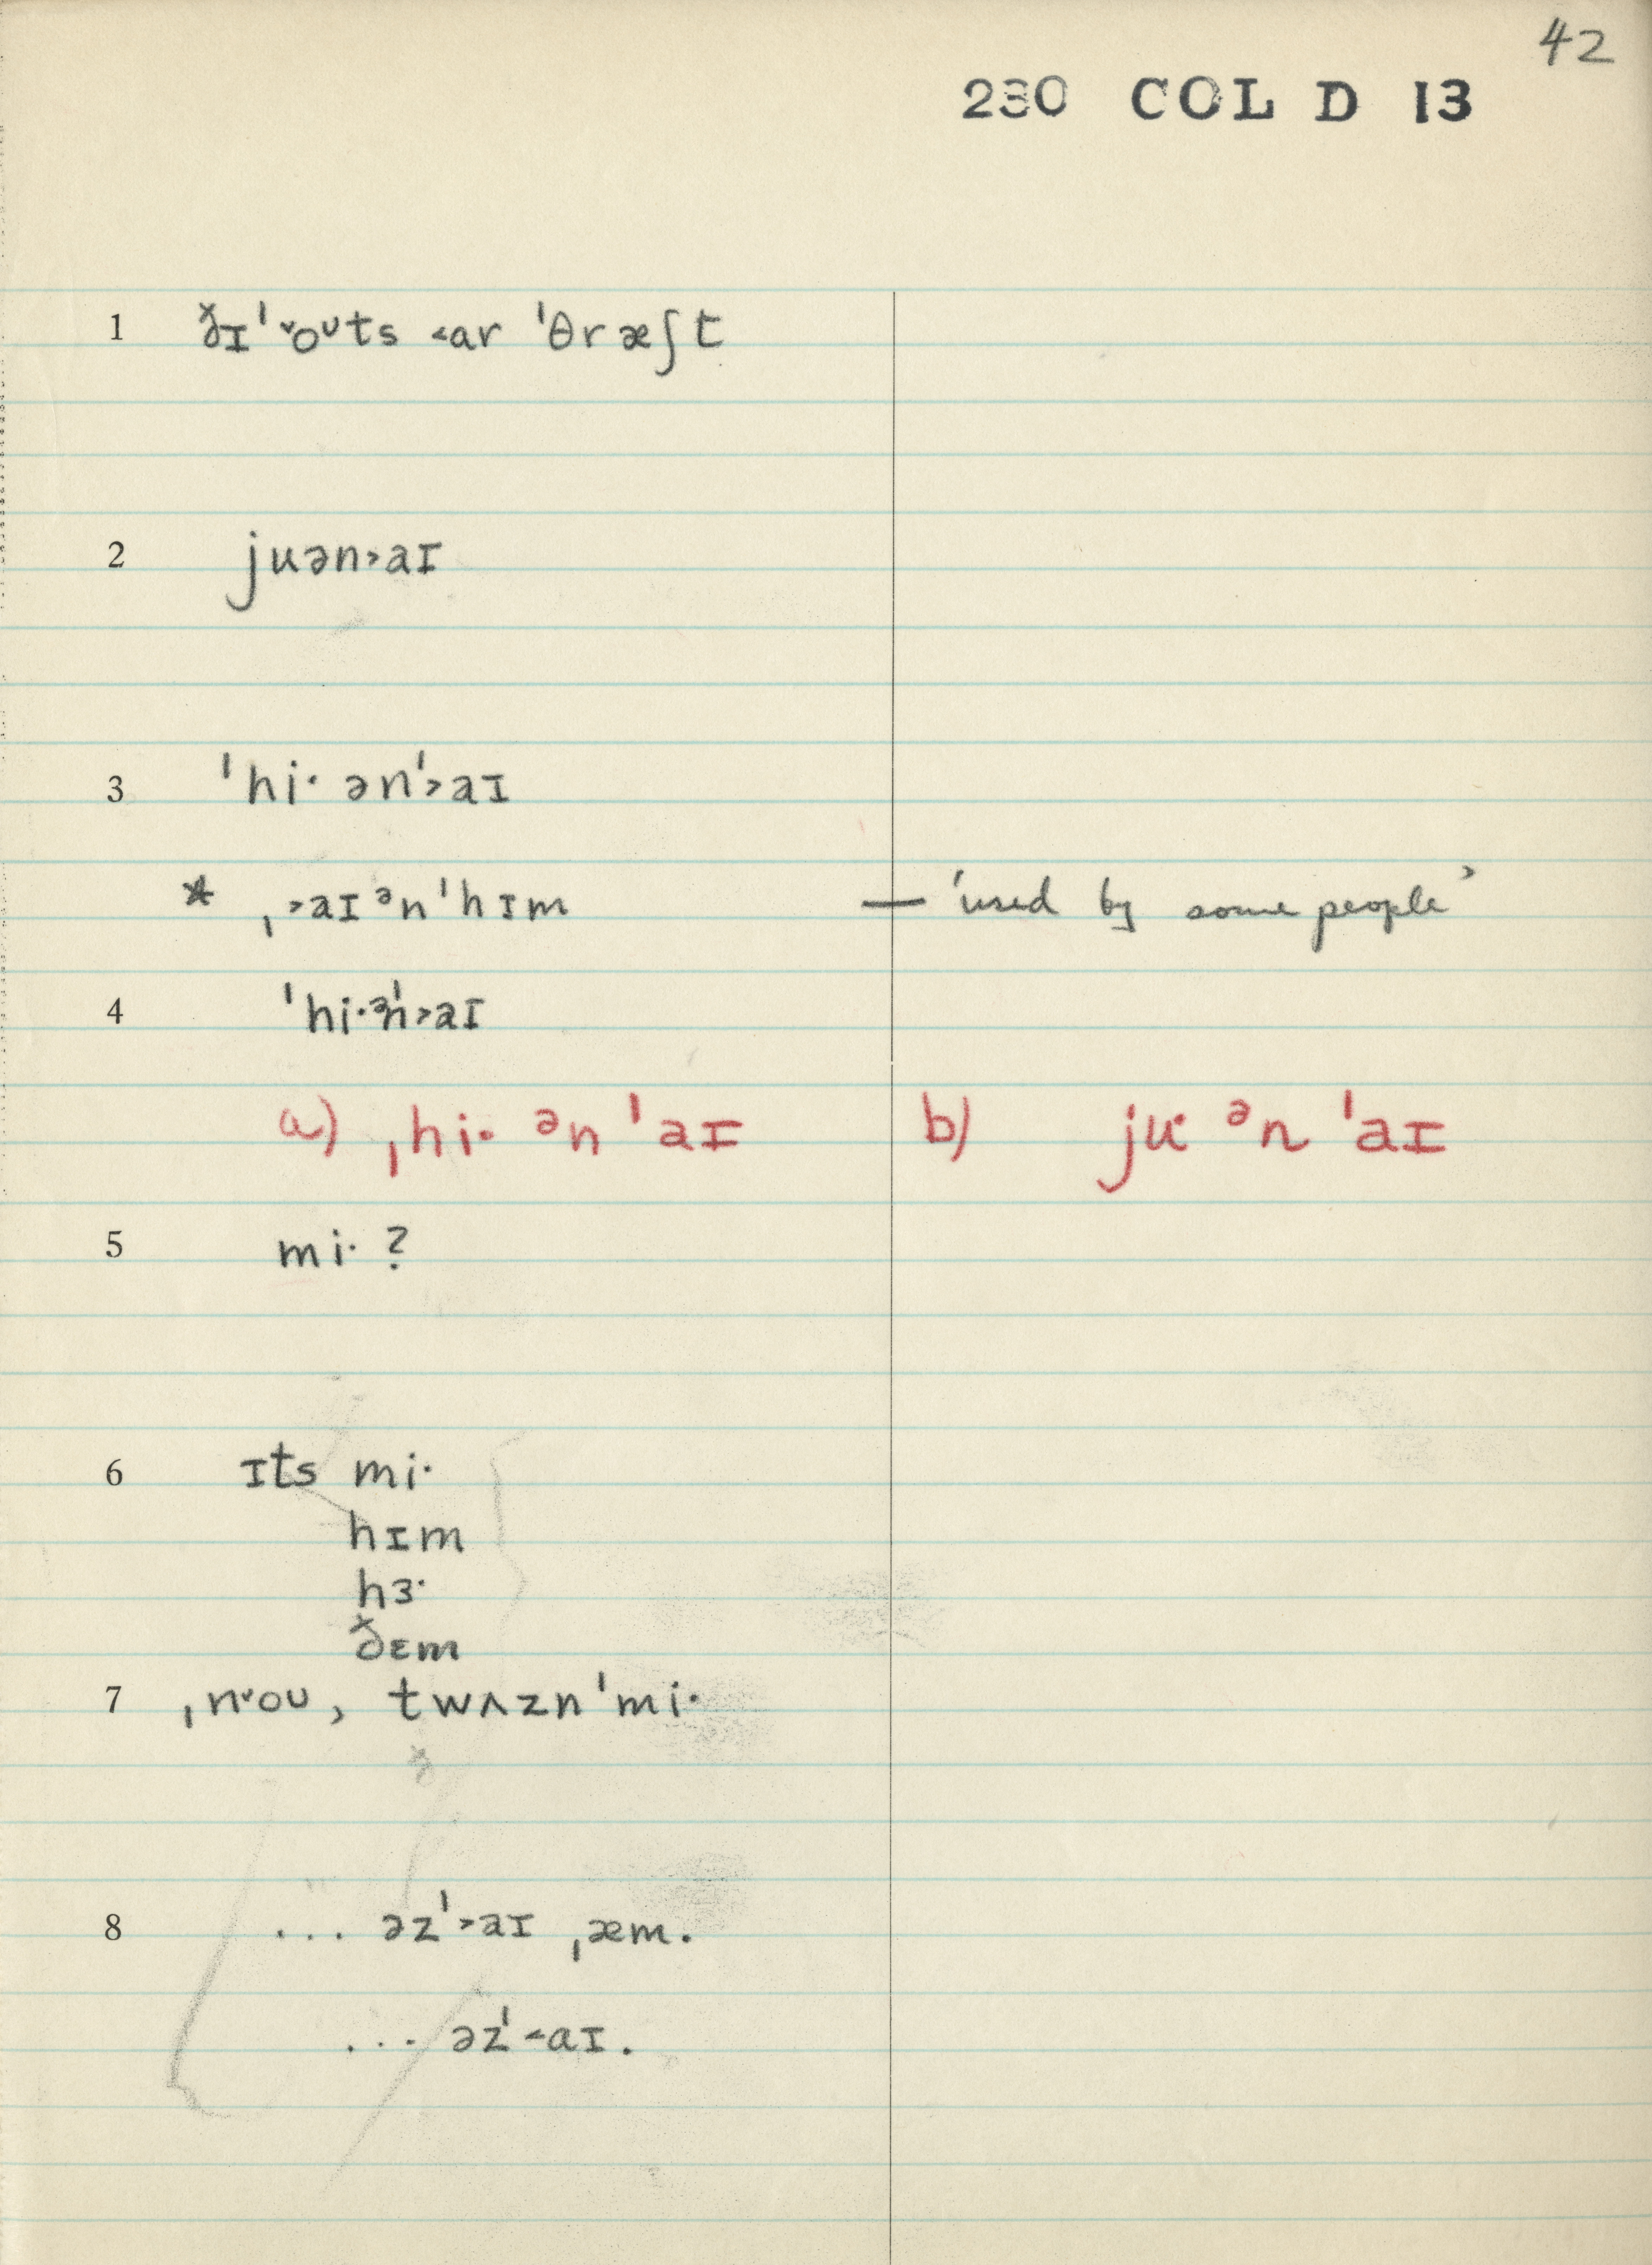 42
230 COL D 13
1 ðɪˈ˅oᴜts ˂ar ˈθræʃt
2 juən˃aɪ
3 ˈhi· ənˈ˃aɪ
* ˌ˃aɪ ᵊnˈhɪm — 'used by some people'
4 ˈhi·ᵊnˈ˃aɪ
a) ˌhi· ᵊn ˈaɪ b) ju· ᵊn ˈaɪ
5 mi· ?
6 ɪts mi·
hɪm
hɜ·
ðɛm
7 ˌn˅oᴜ, twʌznˈmi·
8 ... əzˈ˃aɪ ˌæm.
... əzˈ˂aɪ.